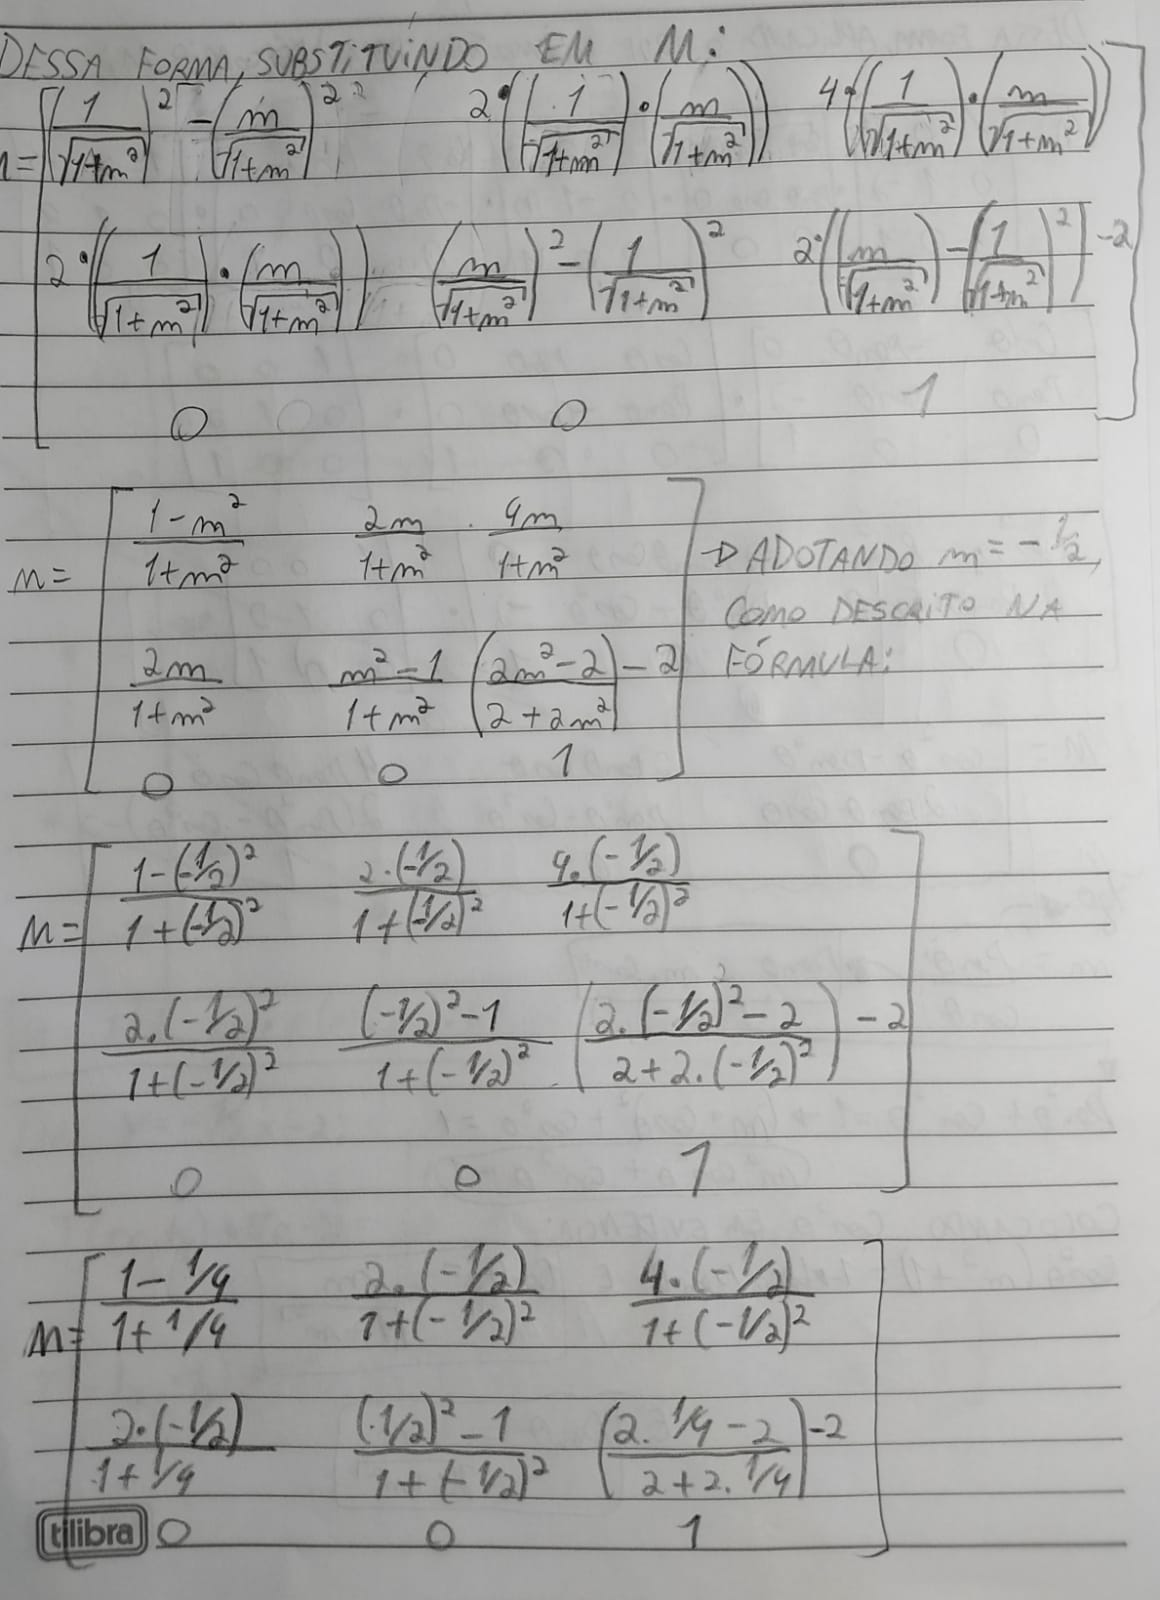 DESSA FORMA, SUBSTITUINDO EM M:
M = [ (1/√(1+m²))² - (m/√(1+m²))²   2·((1/√(1+m²))·(m/√(1+m²)))   4·((1/√(1+m²))·(m/√(1+m²)))
2·((1/√(1+m²))·(m/√(1+m²)))   (m/√(1+m²))² - (1/√(1+m²))²   2·((m/√(1+m²)) - (1/√(1+m²))²) - 2
0   0   1 ]
M = [ (1-m²)/(1+m²)   2m/(1+m²)   4m/(1+m²)
2m/(1+m²)   (m²-1)/(1+m²)   ((2m²-2)/(2+2m²)) - 2
0   0   1 ]
→ ADOTANDO m = -1/2,
COMO DESCRITO NA
FÓRMULA:
M = [ (1-(-1/2)²)/(1+(-1/2)²)   2·(-1/2)/(1+(-1/2)²)   4·(-1/2)/(1+(-1/2)²)
2·(-1/2)²/(1+(-1/2)²)   ((-1/2)²-1)/(1+(-1/2)²)   ((2·(-1/2)²-2)/(2+2·(-1/2)²)) - 2
0   0   1 ]
M = [ (1-1/4)/(1+1/4)   2·(-1/2)/(1+(-1/2)²)   4·(-1/2)/(1+(-1/2)²)
2·(-1/2)/(1+1/4)   ((-1/2)²-1)/(1+(-1/2)²)   ((2·1/4-2)/(2+2·1/4)) - 2
0   0   1 ]
tilibra